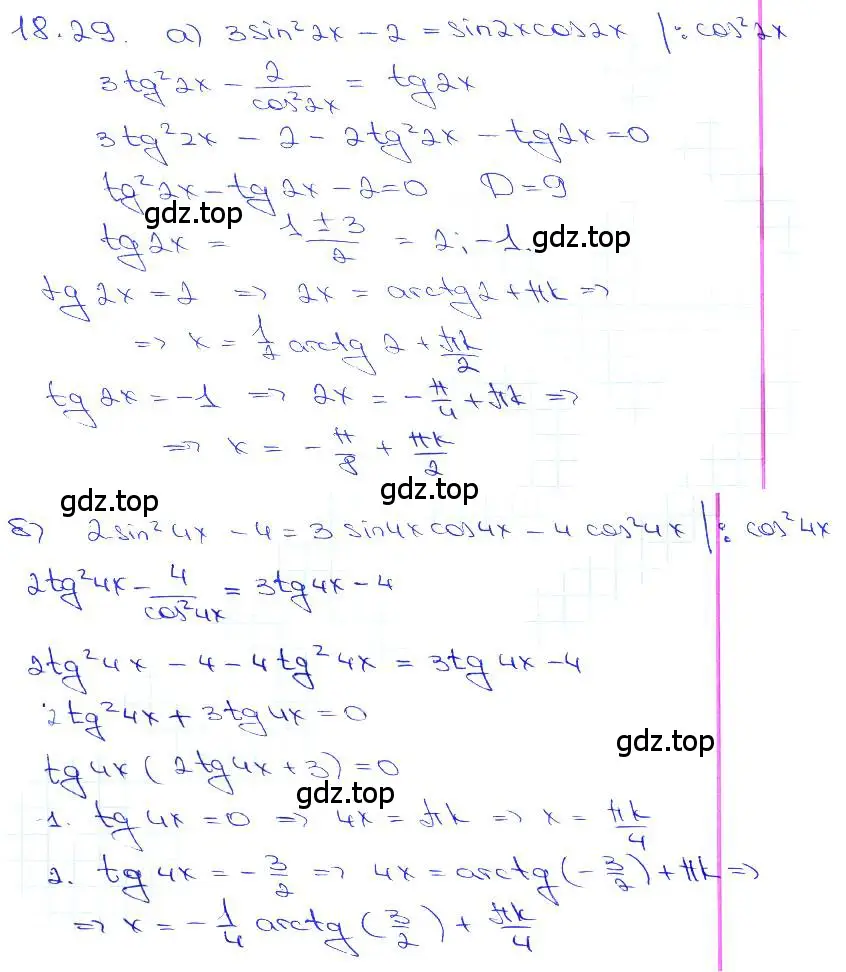 18.29. а) 3sin²2x − 2 = sin2xcos2x |: cos²2x
3tg²2x − 2/cos²2x = tg2x
3tg²2x − 2 − 2tg²2x − tg2x = 0
tg²2x − tg2x − 2 = 0 D = 9
gdz.top
tg2x = (1 ± 3)/2 = 2; −1. gdz.top
tg2x = 2 => 2x = arctg2 + πk =>
=> x = 1/2 arctg 2 + πk/2
tg2x = −1 => 2x = −π/4 + πk =>
=> x = −π/8 + πk/2
gdz.top gdz.top
б) 2sin²4x − 4 = 3sin4xcos4x − 4cos²4x |: cos²4x
2tg²4x − 4/cos²4x = 3tg4x − 4
2tg²4x − 4 − 4tg²4x = 3tg4x − 4
2tg²4x + 3tg4x = 0
gdz.top
tg4x(2tg4x + 3) = 0
gdz.top
1. tg4x = 0 => 4x = πk => x = πk/4
2. tg4x = −3/2 => 4x = arctg(−3/2) + πk =>
=> x = −1/4 arctg(3/2) + πk/4